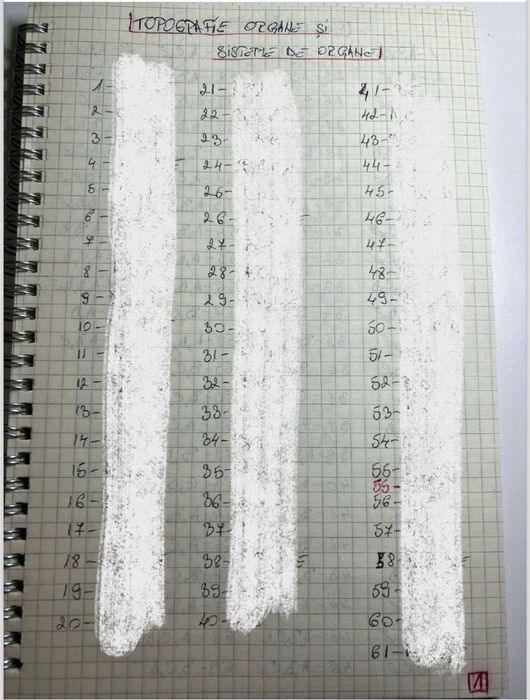 TOPOGRAFIE ORGANE ȘI
SISTEME DE ORGANE
1-
2-
3-
4-
5-
6-
7-
8-
9-
10-
11-
12-
13-
14-
15-
16-
17-
18-
19-
20-
21-
22-
23-
24-
25-
26-
27-
28-
29-
30-
31-
32-
33-
34-
35-
36-
37-
38-
39-
40-
41-
42-
43-
44-
45-
46-
47-
48-
49-
50-
51-
52-
53-
54-
55-
55-
56-
57-
58-
59-
60-
61-
1